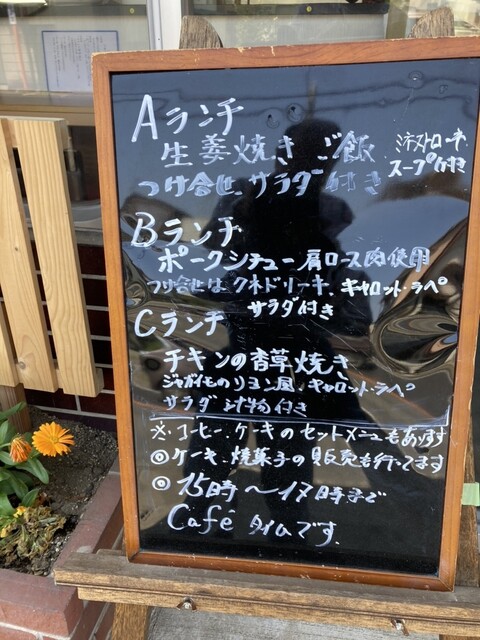 Aランチ
生姜焼き ご飯 ミネストローネ
スープ付き
つけ合せ、サラダ付き
Bランチ
ポークシチュー肩ロース肉使用
つけ合せは、クネドリーキ、キャロット・ラペ
サラダ付き
Cランチ
チキンの香草焼き
ジャガイモのリヨン風、キャロット・ラペ
サラダ 付き
※コーヒー、ケーキのセットメニューもあります
◎ケーキ、焼菓子の販売も行ってます
◎15時〜17時まで
Café タイムです。